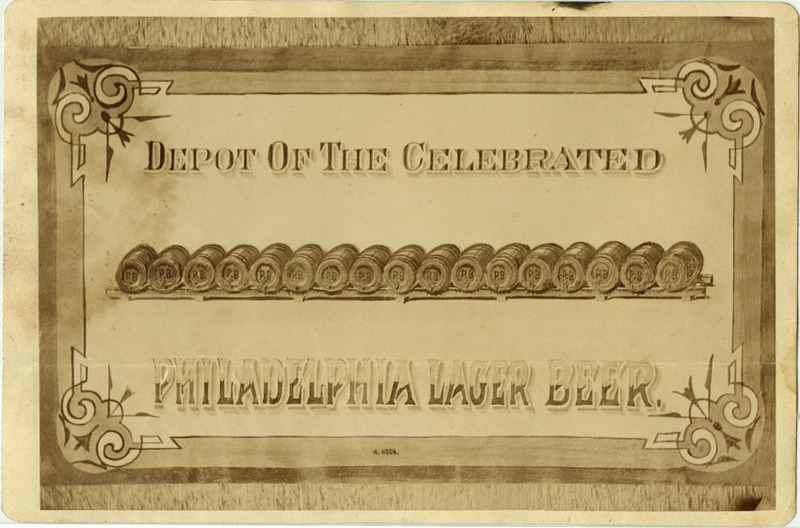 DEPOT OF THE CELEBRATED
P.B. P.B. P.B. P.B. P.B. P.B. P.B. P.B. P.B. P.B. P.B. P.B. P.B. P.B. P.B. P.B. P.B.
PHILADELPHIA LAGER BEER.